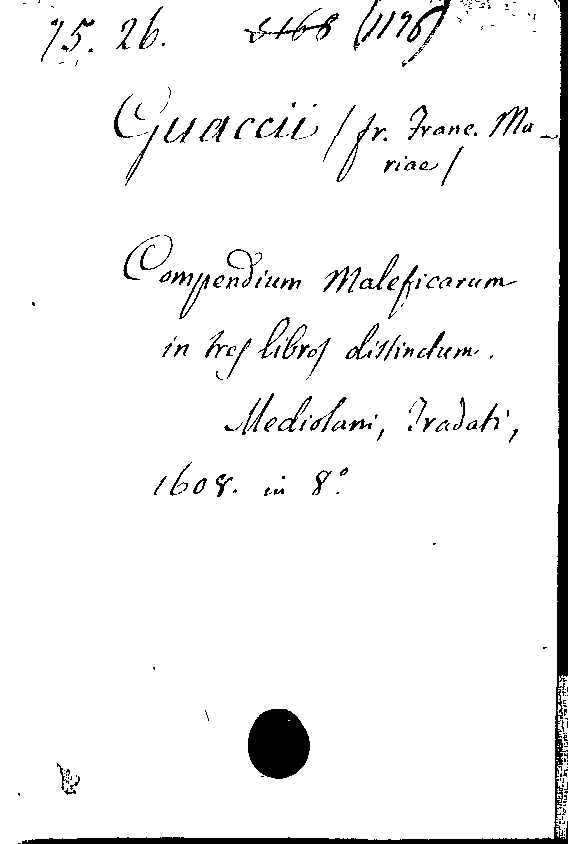 75. 26. (1176)
Guaccii / fr. Franc. Ma-
riae /
Compendium Maleficarum
in tres libros distinctum.
Mediolani, Tradati,
1608. in 8.º